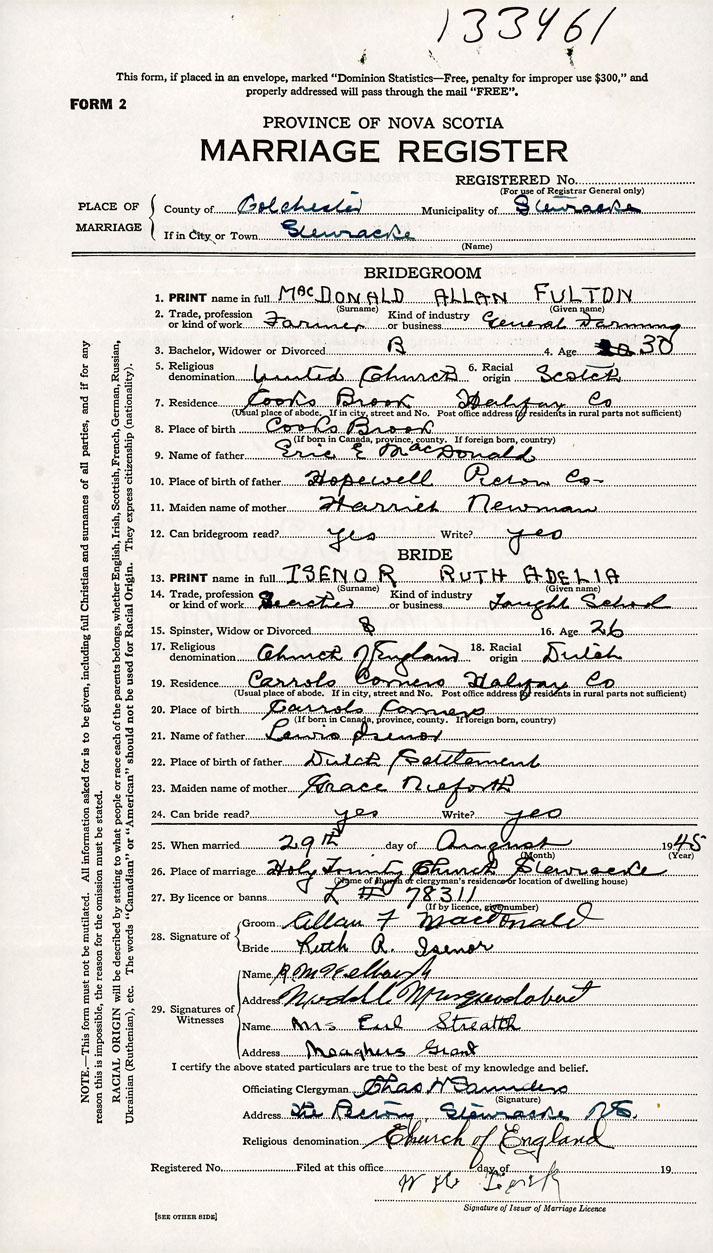 133461
This form, if placed in an envelope, marked "Dominion Statistics—Free, penalty for improper use $300," and
properly addressed will pass through the mail "FREE".
FORM 2
PROVINCE OF NOVA SCOTIA
MARRIAGE REGISTER
REGISTERED No.
(For use of Registrar General only)
PLACE OF MARRIAGE
County of Colchester Municipality of Stewiacke
If in City or Town Stewiacke
(Name)
BRIDEGROOM
1. PRINT name in full MacDONALD ALLAN FULTON
(Surname) (Given name)
2. Trade, profession or kind of work Farmer Kind of industry or business General Farming
3. Bachelor, Widower or Divorced B 4. Age 30
5. Religious denomination United Church 6. Racial origin Scotch
7. Residence Cooks Brook Halifax Co
(Usual place of abode. If in city, street and No. Post office address for residents in rural parts not sufficient)
8. Place of birth Cooks Brook
(If born in Canada, province, county. If foreign born, country)
9. Name of father Eric E MacDonald
10. Place of birth of father Hopewell Picton Co-
11. Maiden name of mother Harriet Newman
12. Can bridegroom read? yes Write? yes
BRIDE
13. PRINT name in full ISENOR RUTH ADELIA
(Surname) (Given name)
14. Trade, profession or kind of work Kind of industry or business Taught School
15. Spinster, Widow or Divorced S 16. Age 26
17. Religious denomination Church of England 18. Racial origin Dutch
19. Residence Carrols Corners Halifax Co
(Usual place of abode. If in city, street and No. Post office address for residents in rural parts not sufficient)
20. Place of birth Carrols Corners
(If born in Canada, province, county. If foreign born, country)
21. Name of father Lewis Isenor
22. Place of birth of father Dutch Settlement
23. Maiden name of mother Grace Nieforth
24. Can bride read? yes Write? yes
25. When married 29th day of August 1945
(Month) (Year)
26. Place of marriage Holy Trinity Church Stewiacke
(Name of church or clergyman's residence or location of dwelling house)
27. By licence or banns L # 78311
(If by licence, give number)
28. Signature of
Groom Allan F MacDonald
Bride Ruth A. Isenor
29. Signatures of Witnesses
Name
Address Musquodoboit
Name Mrs Earl
Address Meaghers Grant
I certify the above stated particulars are true to the best of my knowledge and belief.
Officiating Clergyman Chas H Saunders
(Signature)
Address The Rectory, Stewiacke N.S.
Religious denomination Church of England
Registered No. Filed at this office day of 19
Signature of Issuer of Marriage Licence
[SEE OTHER SIDE]
NOTE.—This form must not be mutilated. All information asked for is to be given, including full Christian and surnames of all parties, and if for any
reason this is impossible, the reason for the omission must be stated.
RACIAL ORIGIN will be described by stating to what people or race each of the parents belongs, whether English, Irish, Scottish, French, German, Russian,
Ukrainian (Ruthenian), etc. The words "Canadian" or "American" should not be used for Racial Origin. They express citizenship (nationality).